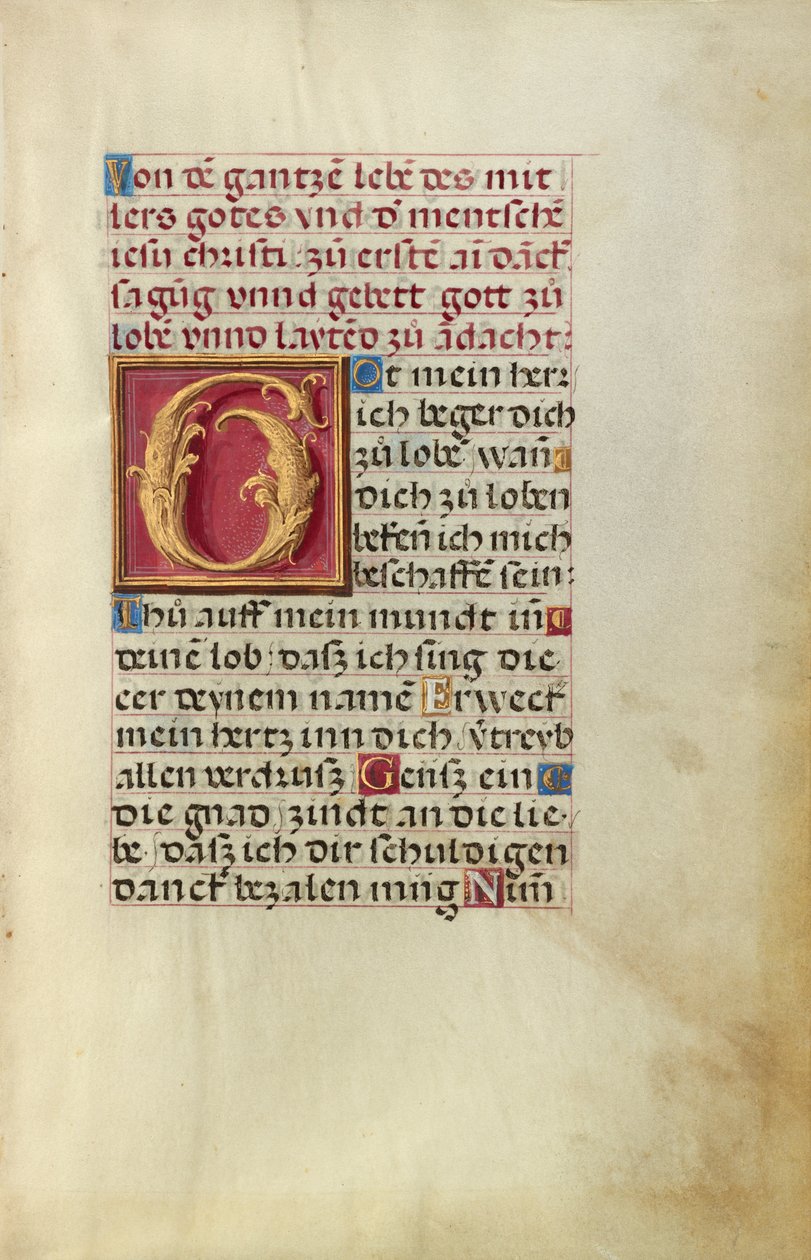 Von dē gantzē lebē des mit
lers gotes vnd d᾽ mentschē
iesu christi : zū erstē aī dāck
sagūg vnnd gebett gott zů
lobē vnnd laytēd zů ādacht :
GOt mein herr
ich beger dich
zů lobē wan̄
dich zů loben
beken̄ ich mich
beschaffē sein :
Thů auff mein mundt in̄
deinē lob daſz ich sing die
eer deynem namē Erweck
mein hertz inn dich v̄treyb
allen verdruſz Geuſz ein
die gnad zindt an die lie-
be daſz ich dir schuldigen
danck bezalen müg Nim̄